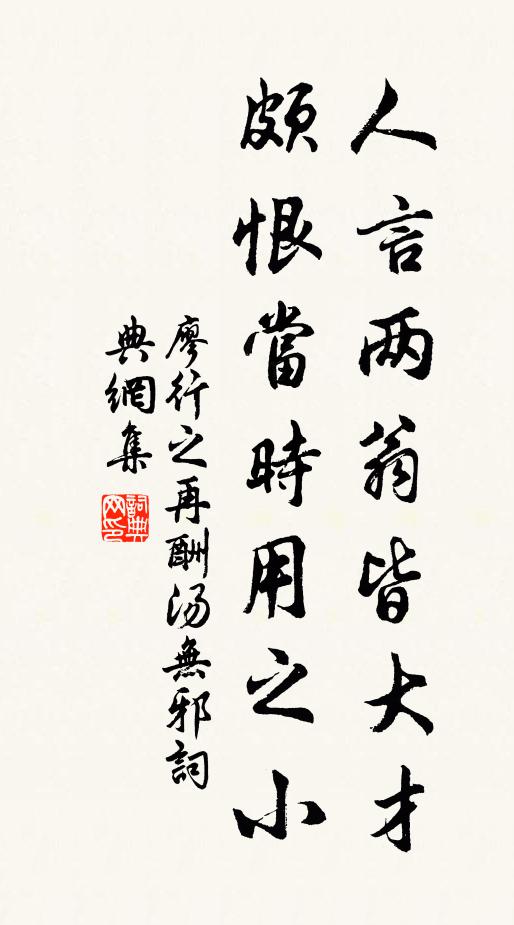 人言两翁皆大才
頗恨當時用之小
廖行之再酬汤無邪詞
典網集
詞典网印